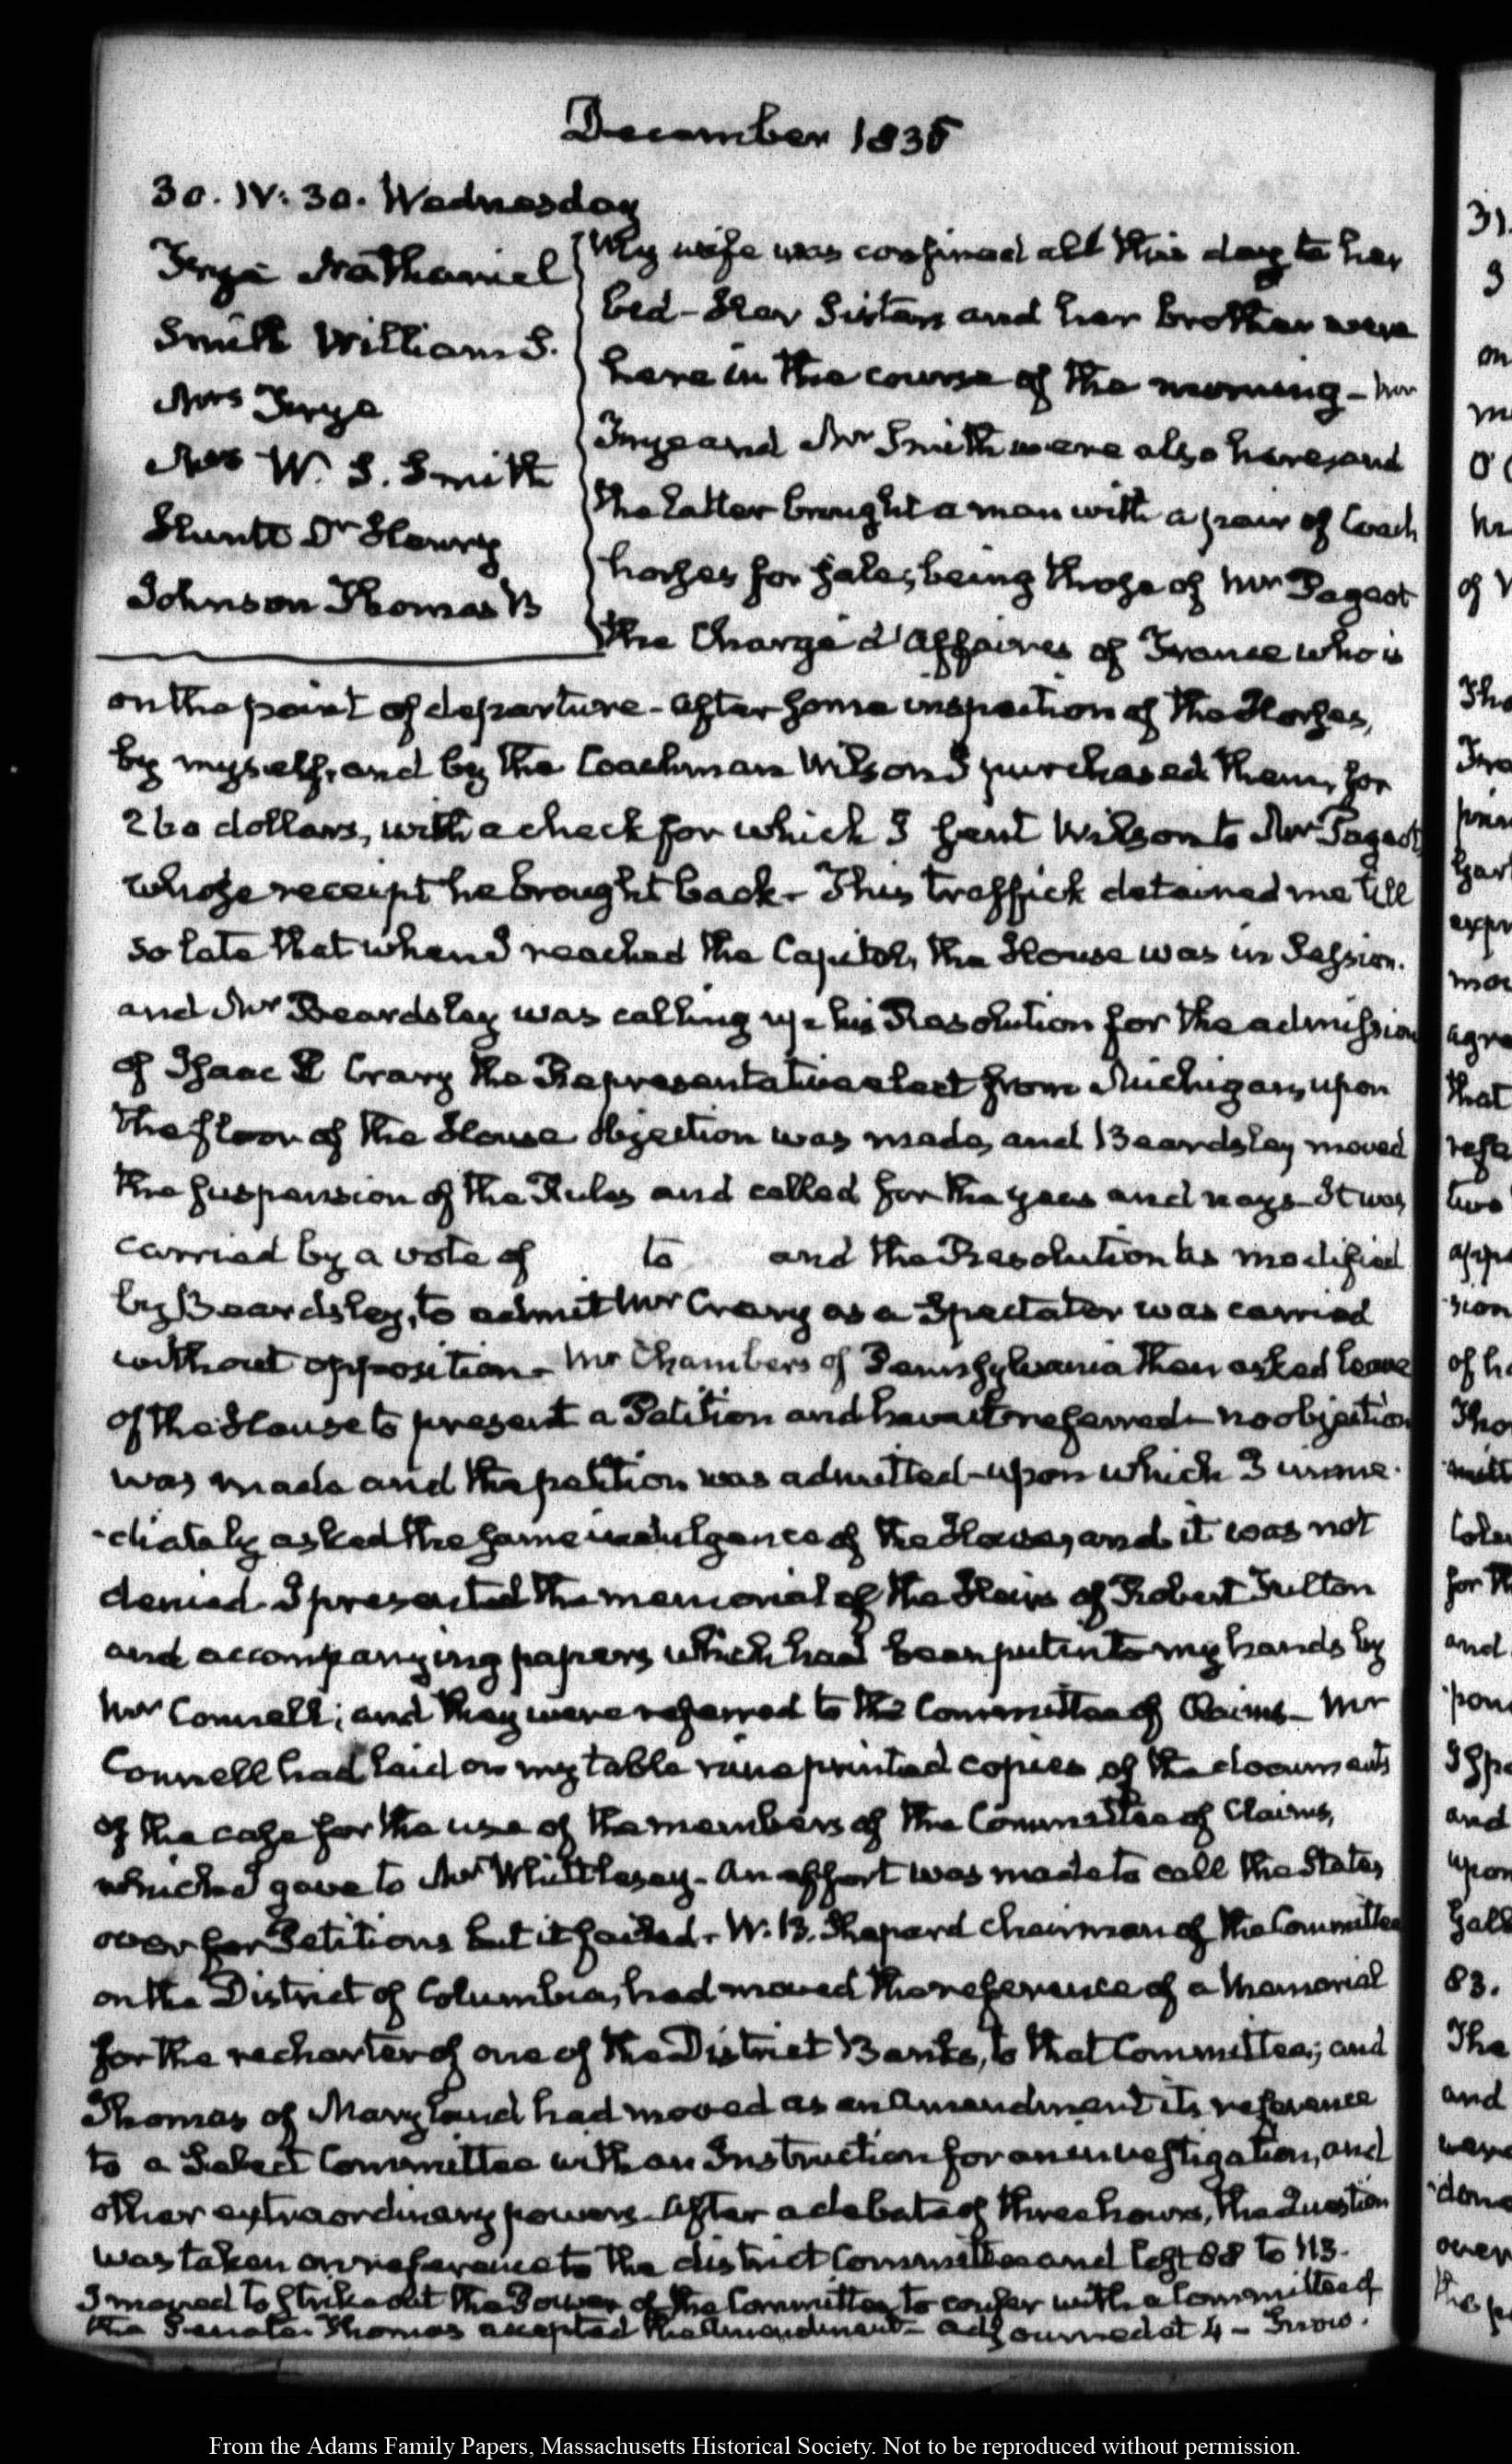 December 1835
30. IV: 30. Wednesday
Frye Nathaniel
Smith William S.
Mrs Frye
Mrs W. S. Smith
Huntt Dr Henry
Johnson Thomas B
My wife was confined all this day to her
bed - Her Sisters and her brother were
here in the course of the morning - Mr
Frye and Mr Smith were also here, and
the latter brought a man with a pair of Coach
horses for sale, being those of Mr Pageot
the Chargé d'Affaires of France who is
on the point of departure - After some inspection of the Horses,
by myself, and by the Coachman Wilson I purchased them, for
260 dollars, with a check for which I sent Wilson to Mr Pageot,
whose receipt he brought back - This traffick detained me till
so late that when I reached the Capitol, the House was in Session.
and Mr Beardsley was calling up his Resolution for the admission
of Isaac E Crary the Representative elect from Michigan, upon
the floor of the House objection was made, and Beardsley moved
the suspension of the Rules and called for the yeas and nays - It was
carried by a vote of to and the Resolution as modified
by Beardsley, to admit Mr Crary as a Spectator was carried
without opposition - Mr Chambers of Pennsylvania then asked leave
of the House to present a Petition and have it referred - no objection
was made and the petition was admitted - upon which I imme-
-diately asked the same indulgence of the House, and it was not
denied. I presented the memorial of the Heirs of Robert Fulton
and accompanying papers which had been put into my hands by
Mr Connell; and they were referred to the Committee of Claims - Mr
Connell had laid on my table nine printed copies of the documents
of the case for the use of the members of the Committee of Claims,
which I gave to Mr Whittlesey - An effort was made to call the States
over for Petitions but it failed - W. B. Shepard Chairman of the Committee
on the District of Columbia, had moved the reference of a Memorial
for the recharter of one of the District Banks, to that Committee; and
Thomas of Maryland had moved as an Amendment its reference
to a Select Committee with an Instruction for an investigation, and
other extraordinary powers - After a debate of three hours, the Question
was taken on reference to the district Committee and lost 88 to 113.
I moved to strike out the Power of the Committee to confer with a Committee of
the Senate. Thomas accepted the Amendment - adjourned at 4 - Snow.
From the Adams Family Papers, Massachusetts Historical Society. Not to be reproduced without permission.